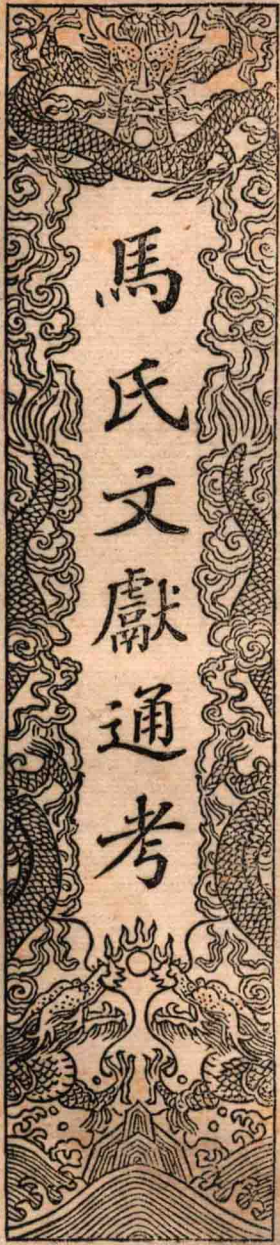 馬氏文獻通考